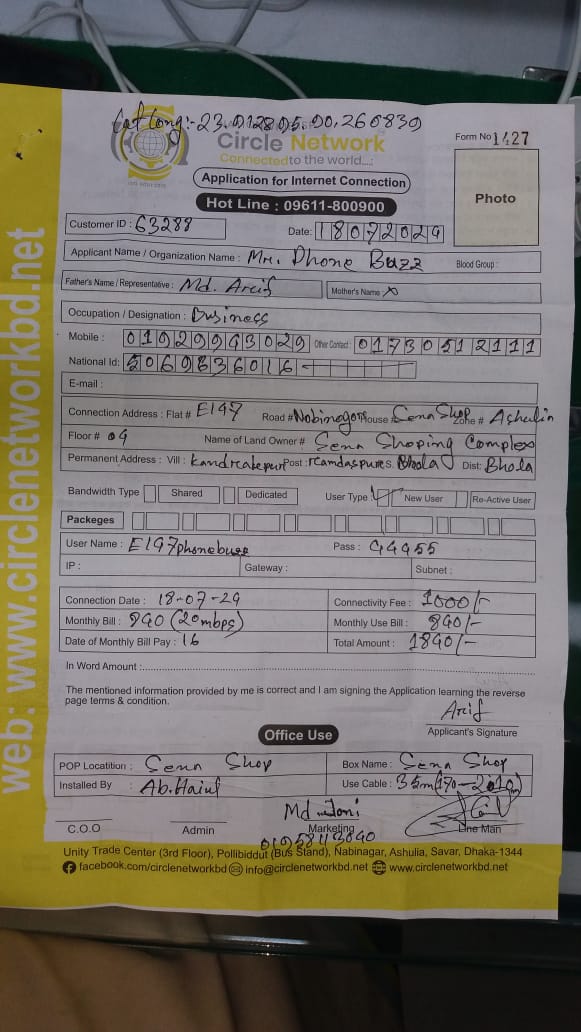 Lat Long:- 23.912895.90.260839
Circle Network
Connected to the world....
Form No 1427
Application for Internet Connection
Photo
Hot Line : 09611-800900
Customer ID : 63288
Date: 18072024
Applicant Name / Organization Name : Mr. Phone Buzz
Blood Group :
Father's Name / Representative : Md. Arif
Mother's Name X
Occupation / Designation : Business
Mobile : Other Contact : 01730512111
National Id:
E-mail :
Connection Address : Flat # E147 Road # House Sena Shop Zone # Ashulia
Floor # 04 Name of Land Owner # Sena Shoping Complex
Permanent Address : Vill : Post : S. Bhola Dist: Bhola
Bandwidth Type Shared Dedicated User Type New User Re-Active User
Packeges
User Name : E147phonebuzz Pass : 44455
IP : Gateway : Subnet :
Connection Date : 18-07-24 Connectivity Fee : 1000/-
Monthly Bill : 840 (20mbps) Monthly Use Bill : 840/-
Date of Monthly Bill Pay : 16 Total Amount : 1840/-
In Word Amount :
The mentioned information provided by me is correct and I am signing the Application learning the reverse
page terms & condition.
Arif
Applicant's Signature
Office Use
POP Locatition : Sena Shop Box Name : Sena Shop
Installed By Ab. Use Cable : 35m
Md
C.O.O Admin Marketing Line Man
Unity Trade Center (3rd Floor), Pollibiddut (Bus Stand), Nabinagar, Ashulia, Savar, Dhaka-1344
facebook.com/circlenetworkbd info@circlenetworkbd.net www.circlenetworkbd.net
web: www.circlenetworkbd.net